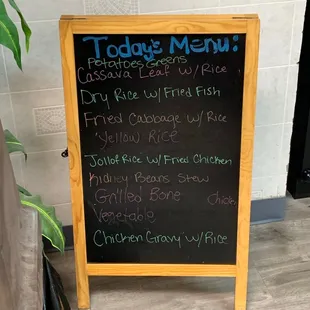 Today's Menu:
Potatoes Greens
Cassava Leaf W/ Rice
Dry Rice W/ Fried Fish
Fried Cabbage W/ Rice
Yellow Rice
Jollof Rice W/ Fried Chicken
Kidney Beans Stew
Grilled Bone
Chicken
Vegetable
Chicken Gravy W/ Rice